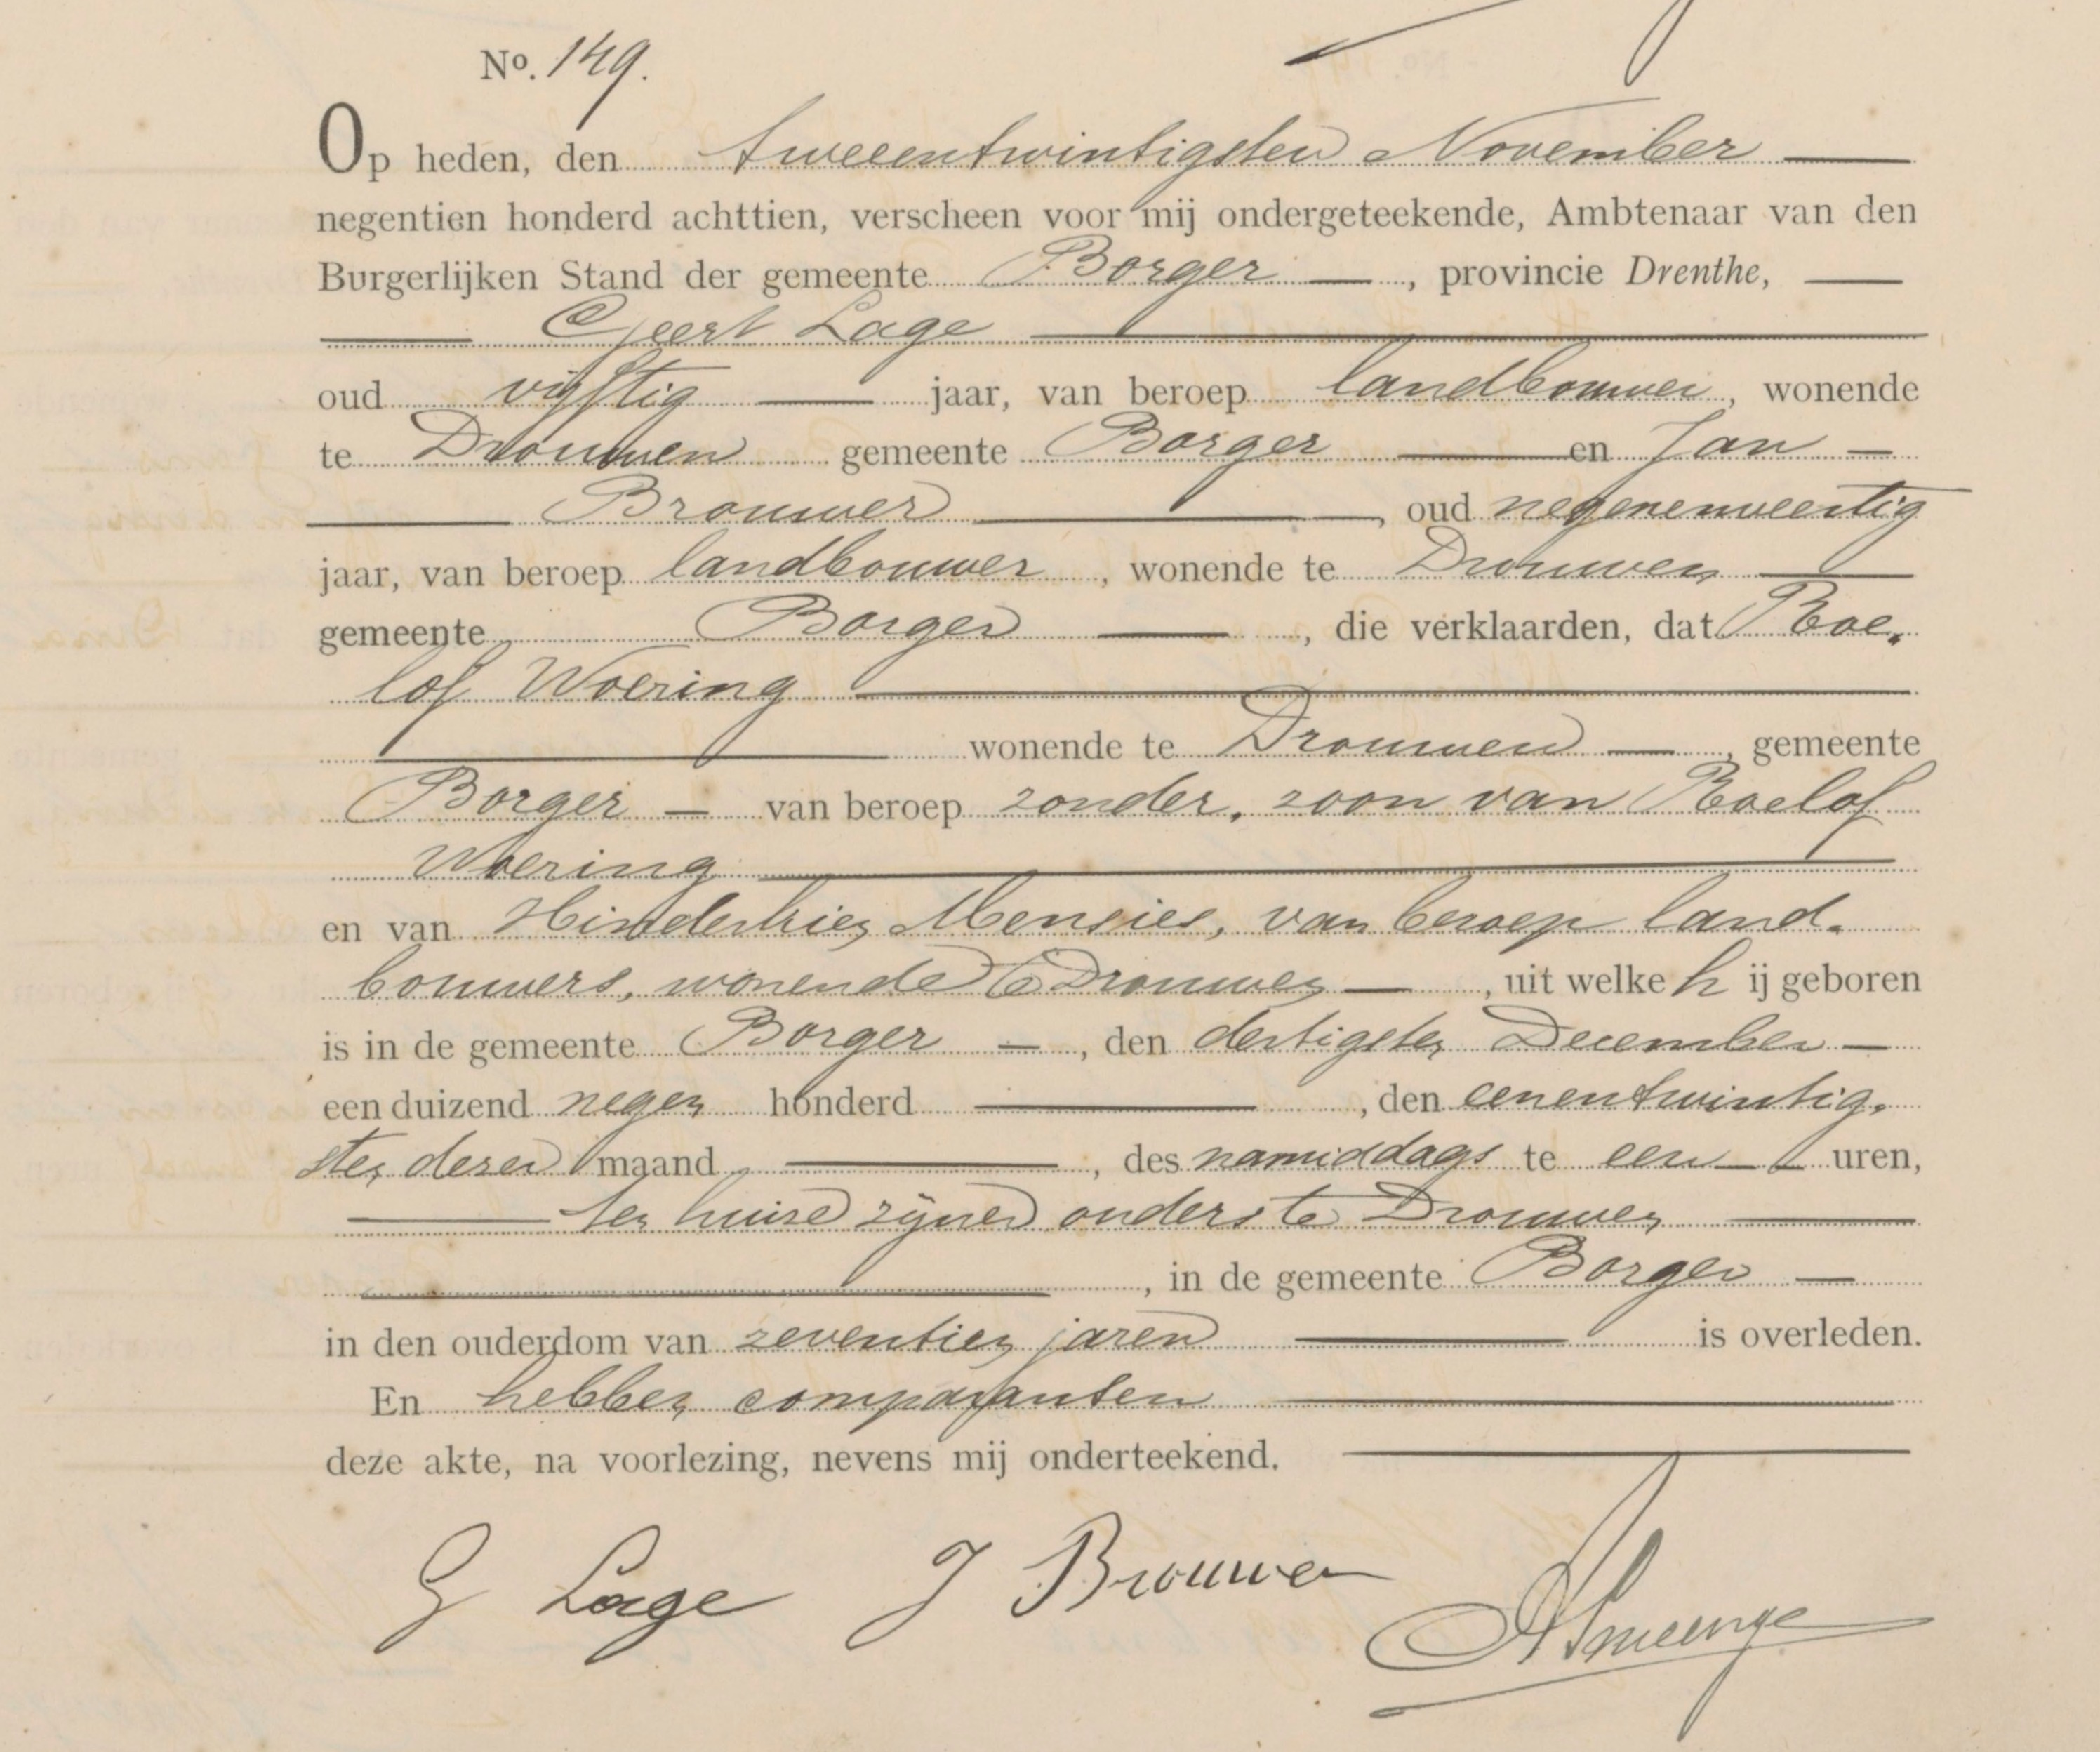 No. 149.
Op heden, den tweeentwintigsten November
negentien honderd achttien, verscheen voor mij ondergeteekende, Ambtenaar van den
Burgerlijken Stand der gemeente Borger, provincie Drenthe,
Geert Lage
oud vijftig jaar, van beroep landbouwer, wonende
te Drouwen gemeente Borger en Jan
Brouwer, oud negenenveertig
jaar, van beroep landbouwer, wonende te Drouwen
gemeente Borger, die verklaarden, dat Roe-
lof Woering
wonende te Drouwen, gemeente
Borger van beroep zonder, zoon van Roelof
Woering
en van Hinderkien Mensies, van beroep land-
bouwers, wonende te Drouwen, uit welke hij geboren
is in de gemeente Borger, den dertigsten December
een duizend negen honderd, den eenentwintig-
sten dezer maand, des namiddags te een uren,
ten huize zijner ouders te Drouwen
, in de gemeente Borger
in den ouderdom van zeventien jaren is overleden.
En hebben comparanten
deze akte, na voorlezing, nevens mij onderteekend.
G Lage J Brouwer Smeenge